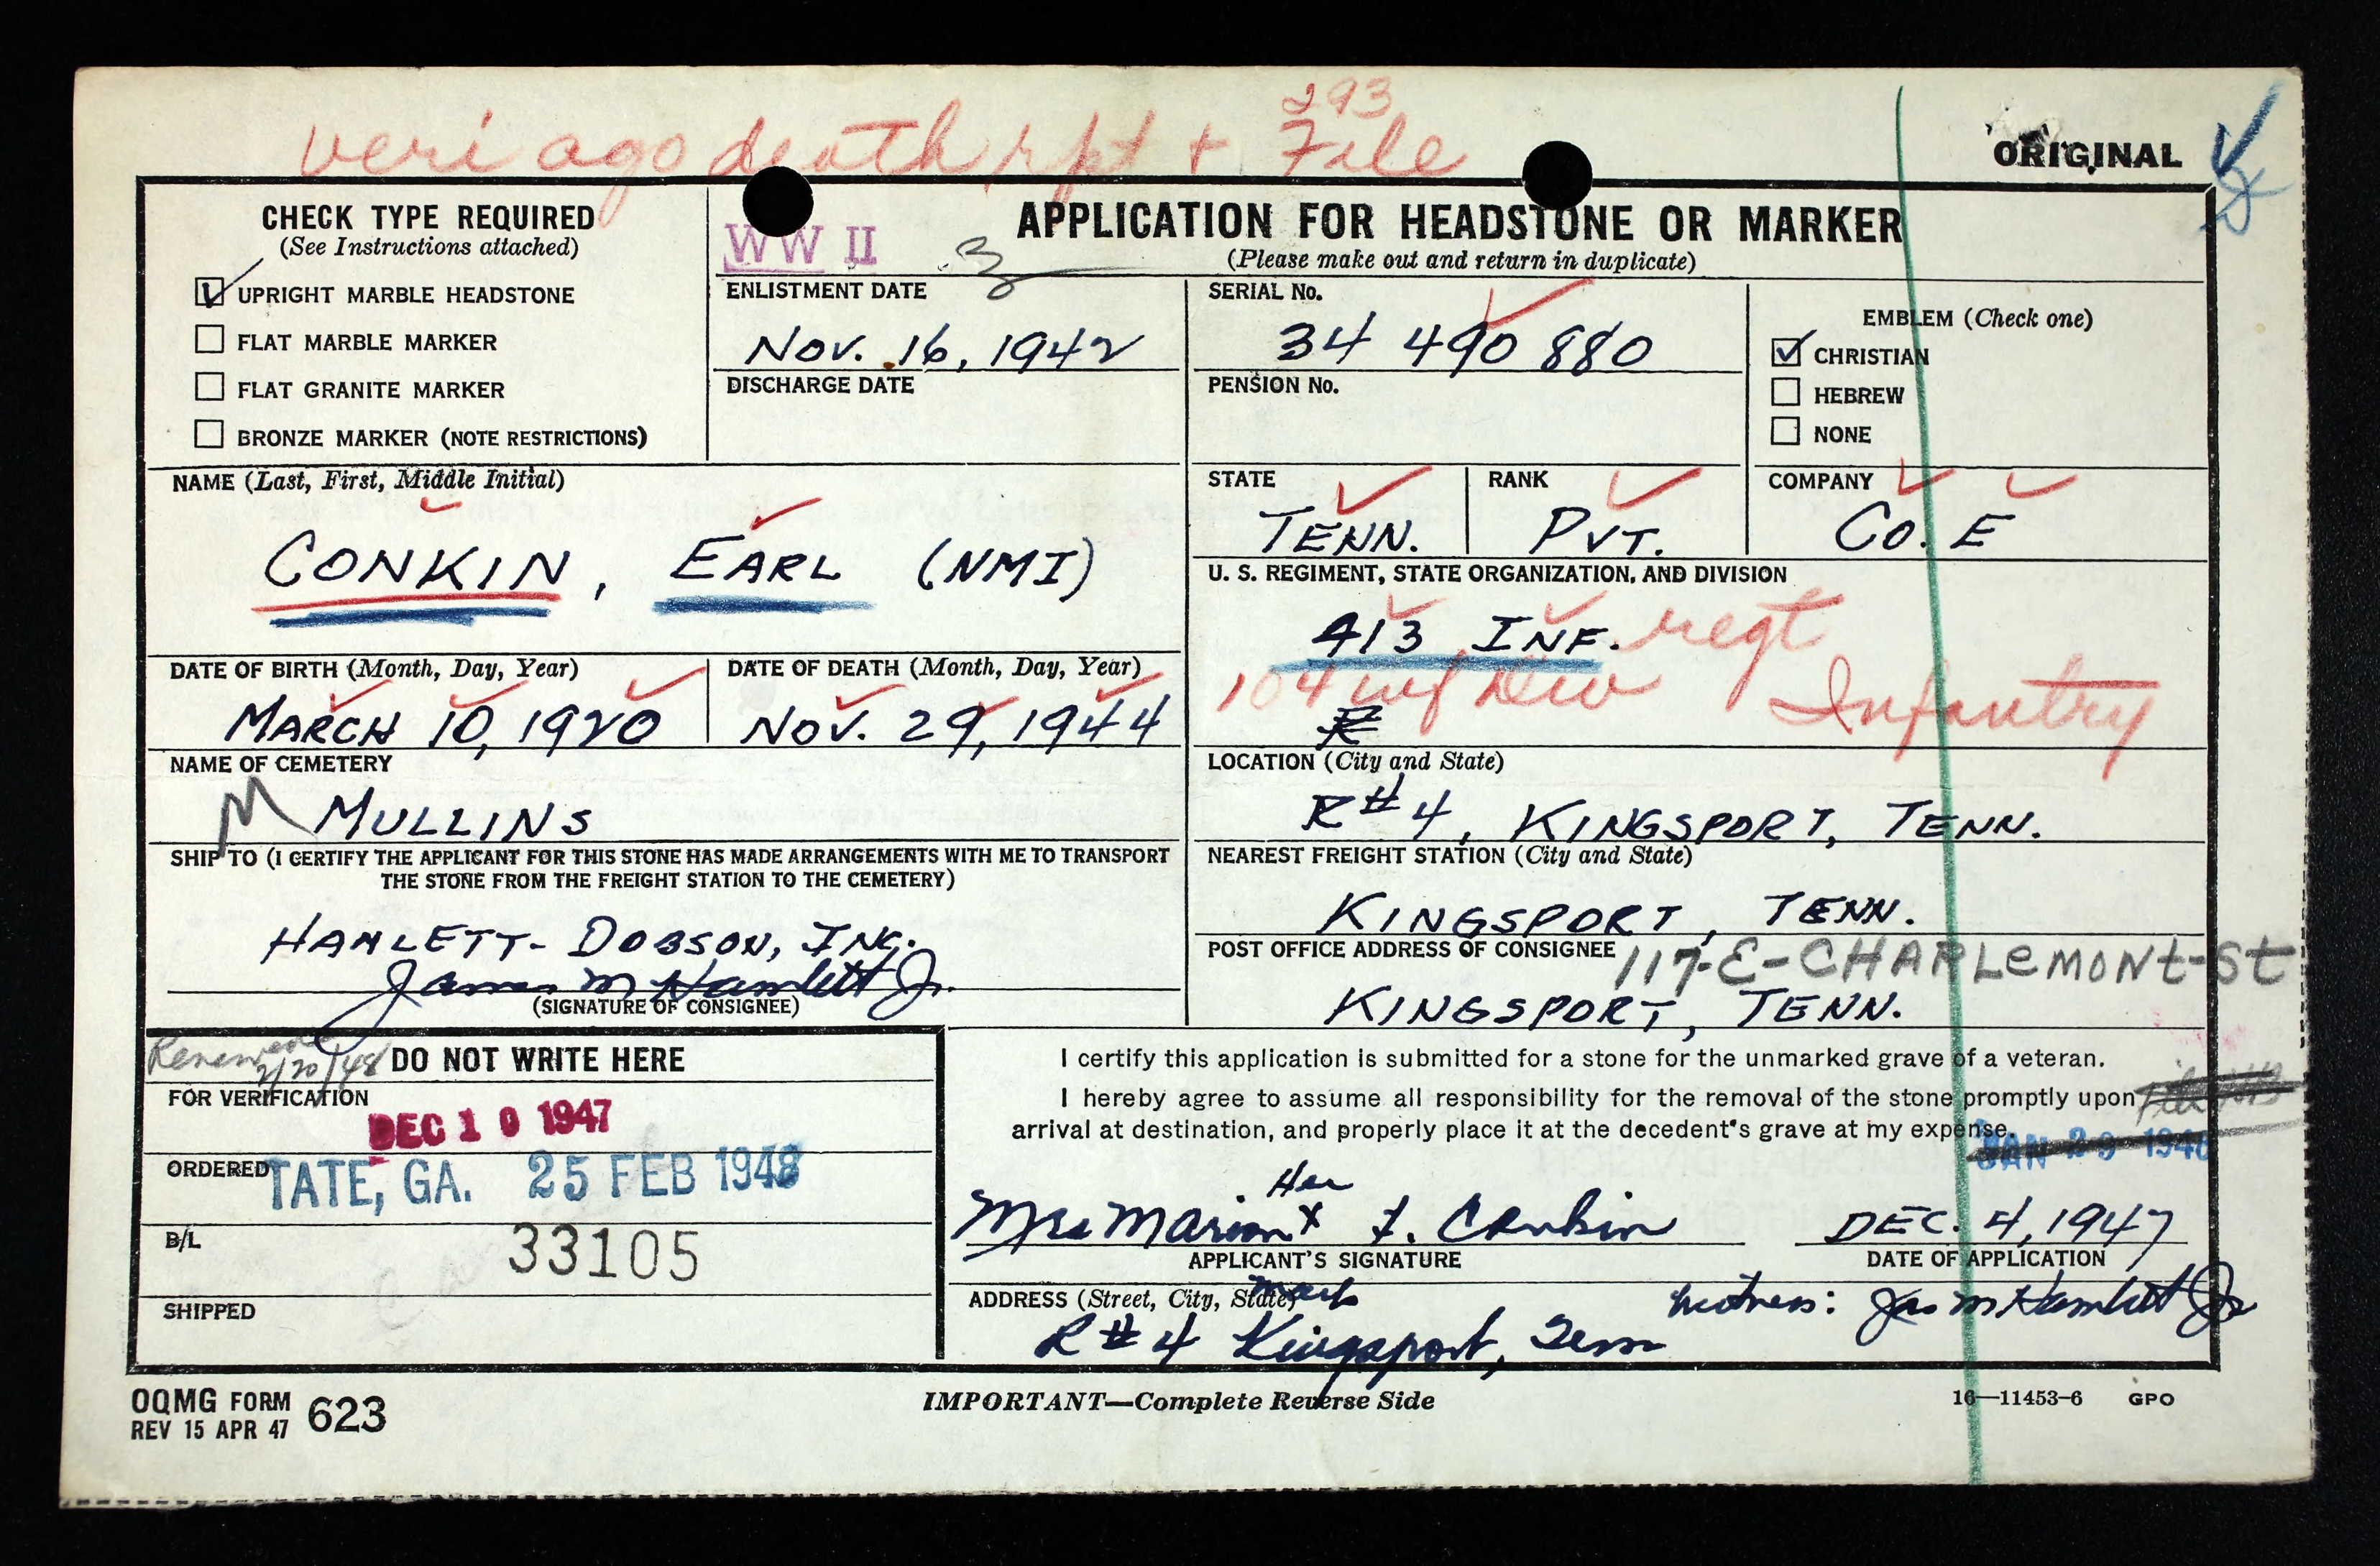 293
veri ago death rpt + File
ORIGINAL
CHECK TYPE REQUIRED
(See Instructions attached)
UPRIGHT MARBLE HEADSTONE
FLAT MARBLE MARKER
FLAT GRANITE MARKER
BRONZE MARKER (NOTE RESTRICTIONS)
WW II
3
APPLICATION FOR HEADSTONE OR MARKER
(Please make out and return in duplicate)
ENLISTMENT DATE
NOV. 16, 1942
DISCHARGE DATE
SERIAL No.
34 490 880
PENSION No.
EMBLEM (Check one)
CHRISTIAN
HEBREW
NONE
NAME (Last, First, Middle Initial)
CONKIN, EARL (NMI)
STATE
TENN.
RANK
PVT.
COMPANY
CO. E
U. S. REGIMENT, STATE ORGANIZATION, AND DIVISION
413 INF. regt
104 inf Div Infantry
DATE OF BIRTH (Month, Day, Year)
MARCH 10, 1920
DATE OF DEATH (Month, Day, Year)
NOV. 29, 1944
NAME OF CEMETERY
M MULLINS
LOCATION (City and State)
R#4, KINGSPORT, TENN.
SHIP TO (I CERTIFY THE APPLICANT FOR THIS STONE HAS MADE ARRANGEMENTS WITH ME TO TRANSPORT
THE STONE FROM THE FREIGHT STATION TO THE CEMETERY)
HAMLETT-DOBSON, INC.
James M Hamlett Jr.
(SIGNATURE OF CONSIGNEE)
NEAREST FREIGHT STATION (City and State)
KINGSPORT, TENN.
POST OFFICE ADDRESS OF CONSIGNEE 117-E-CHARLEMONT-St
KINGSPORT, TENN.
Renewed
2/20/48
DO NOT WRITE HERE
FOR VERIFICATION
DEC 10 1947
ORDERED
TATE, GA. 25 FEB 1948
B/L
33105
SHIPPED
I certify this application is submitted for a stone for the unmarked grave of a veteran.
I hereby agree to assume all responsibility for the removal of the stone promptly upon
arrival at destination, and properly place it at the decedent's grave at my expense.
JAN 29 1948
Her
Mrs Marion X F. Conkin
mark
APPLICANT'S SIGNATURE
DEC. 4, 1947
DATE OF APPLICATION
ADDRESS (Street, City, State)
R#4 Kingsport, Tenn
Witness: Jas M Hamlett Jr
OQMG FORM 623
REV 15 APR 47
IMPORTANT—Complete Reverse Side
16—11453-6 GPO